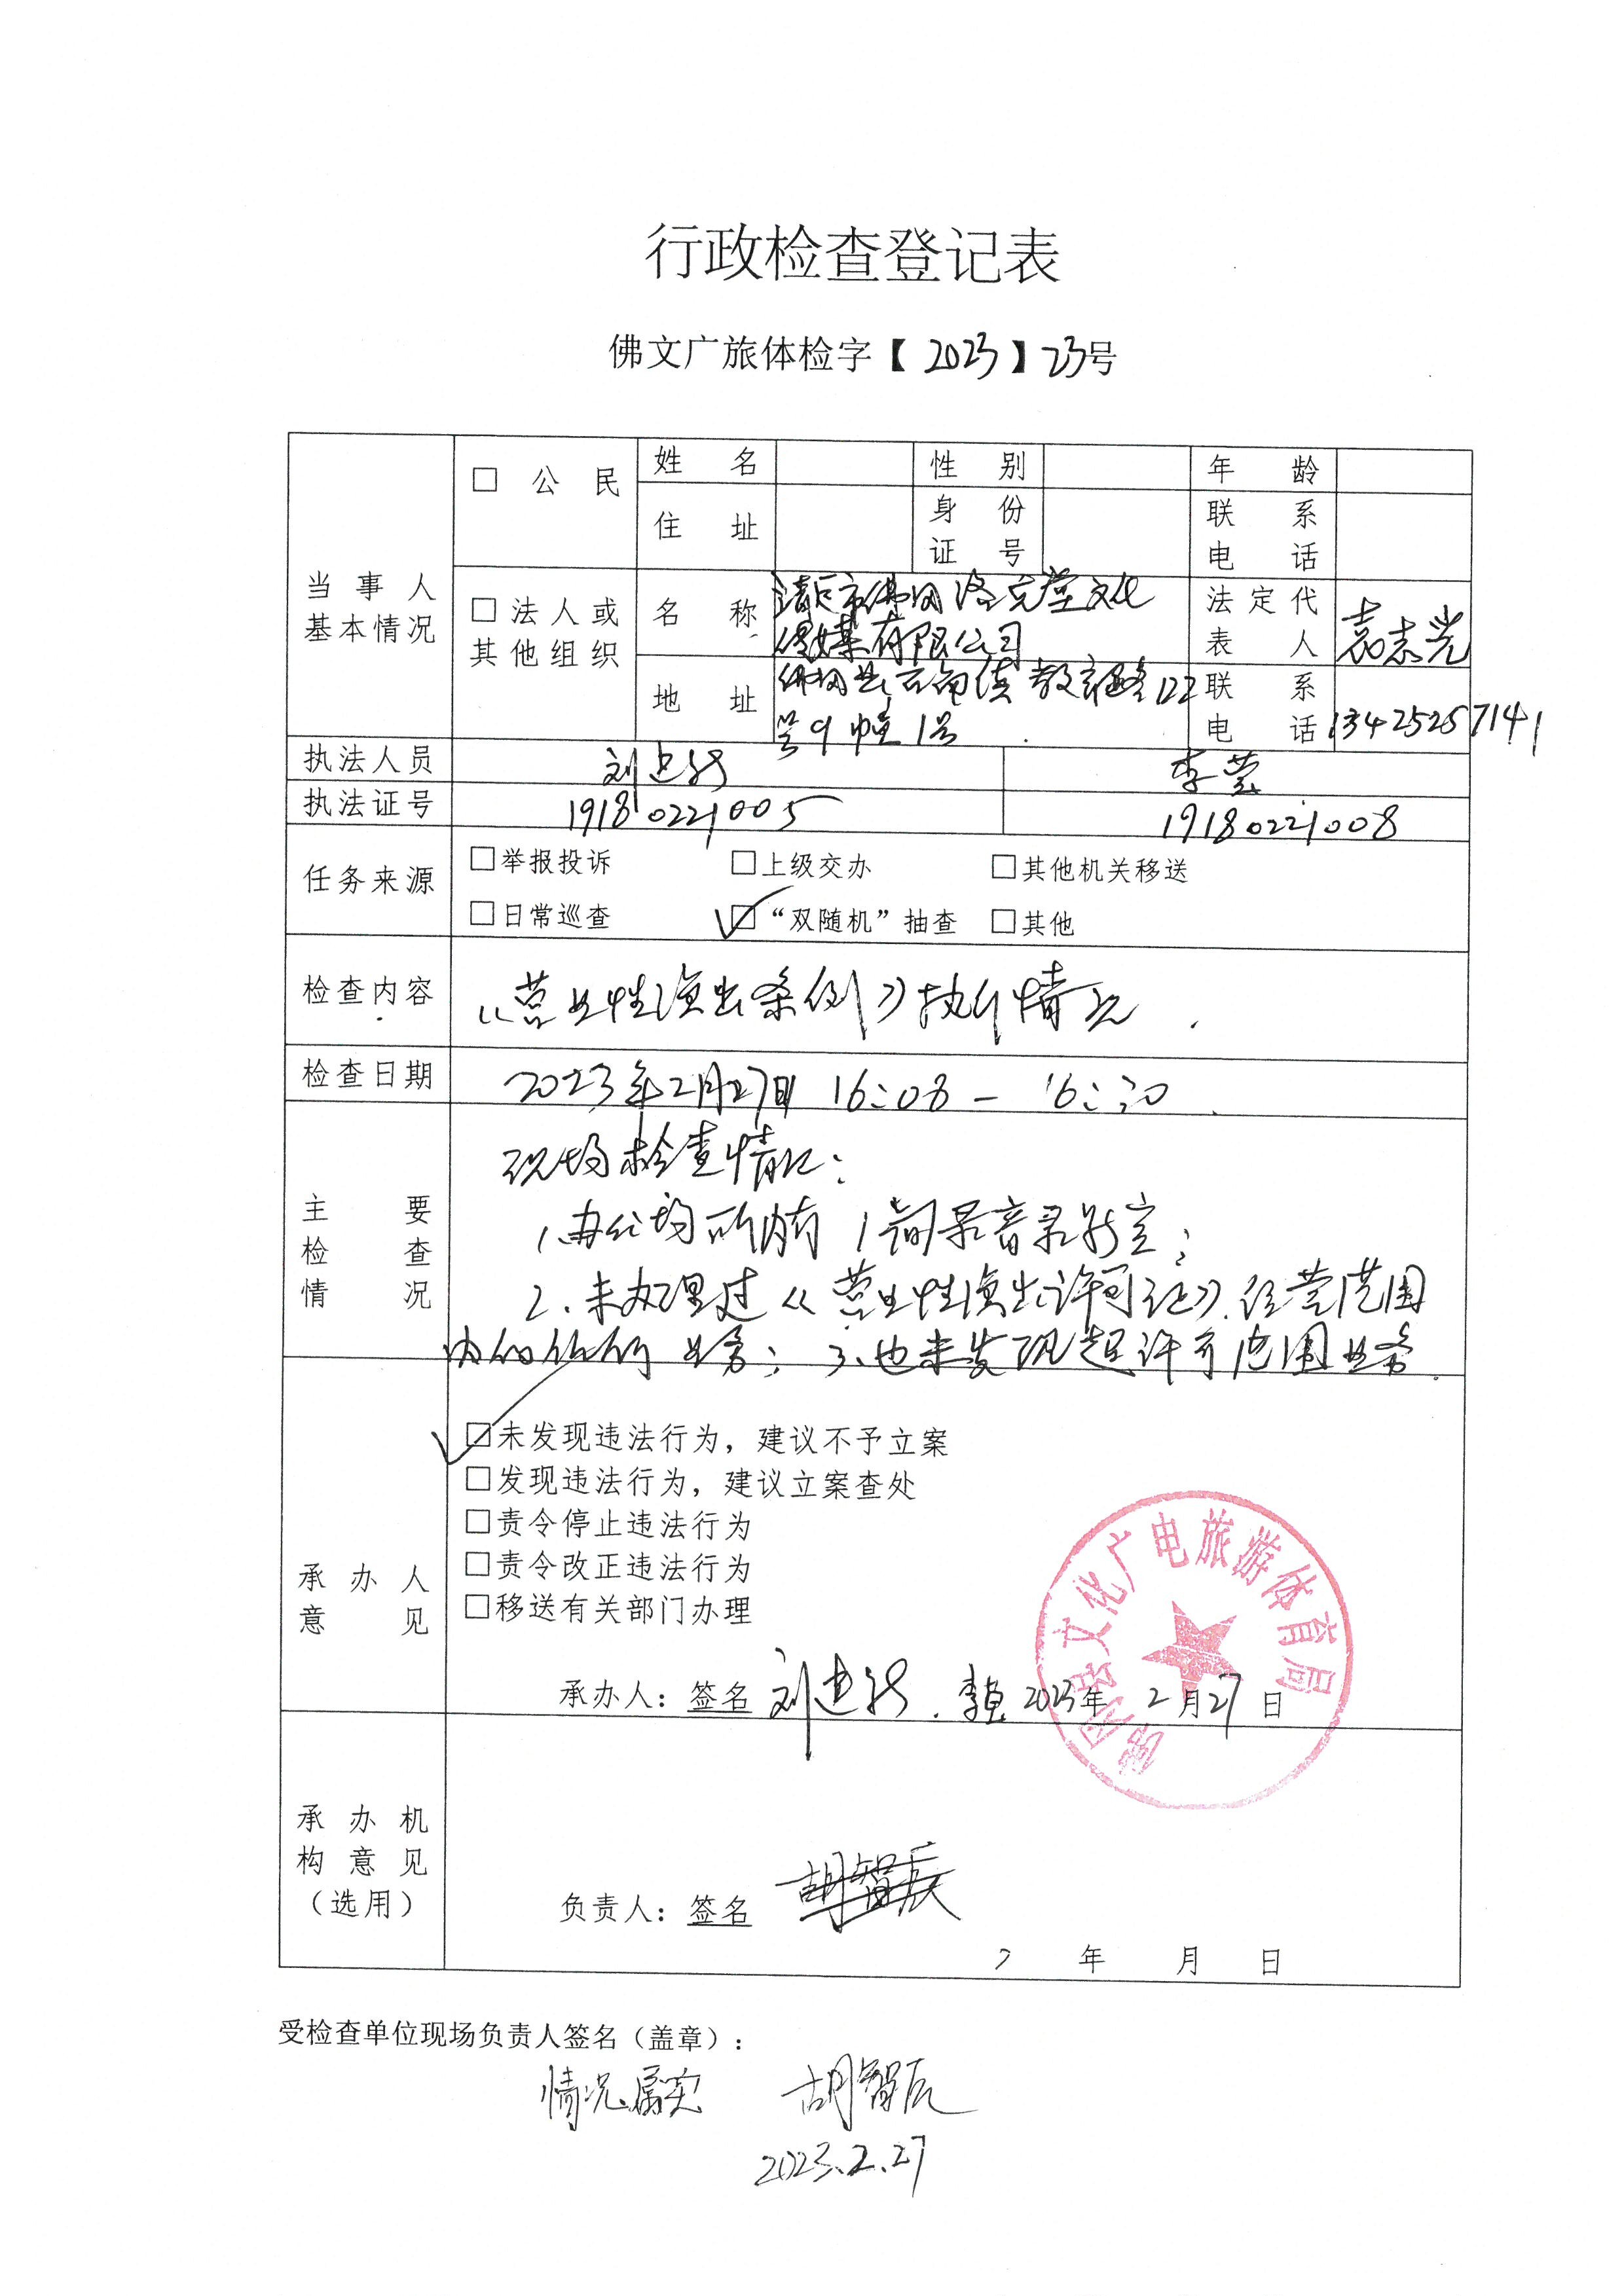 行政检查登记表
佛文广旅体检字【2023】23号
当事人基本情况
□ 公民 姓名 性别 年龄
住址 身份证号 联系电话
□ 法人或其他组织 名称 清远市佛冈 文化
传媒有限公司
法定代表人 袁志光
地址 佛冈县石角镇教育路122
号9幢1号
联系电话 13425257141
执法人员 刘 李莹
执法证号 19180221005 19180221008
任务来源 □举报投诉 □上级交办 □其他机关移送
□日常巡查 ☑“双随机”抽查 □其他
检查内容 《营业性演出条例》执行情况.
检查日期 2023年2月27日 16:08 - 16:30.
主要检查情况
现场检查情况:
1、办公场所内有1间录音录影室;
2、未办理过《营业性演出许可证》经营范围
内的任何业务; 3、也未发现超许可范围业务.
承办人意见
☑未发现违法行为,建议不予立案
□发现违法行为,建议立案查处
□责令停止违法行为
□责令改正违法行为
□移送有关部门办理
承办人:签名 刘 . 李莹 2023年 2月27日
佛冈县文化广电旅游体育局
承办机构意见(选用)
负责人:签名 胡智辰
年 月 日
受检查单位现场负责人签名(盖章):
情况属实 胡智辰
2023.2.27